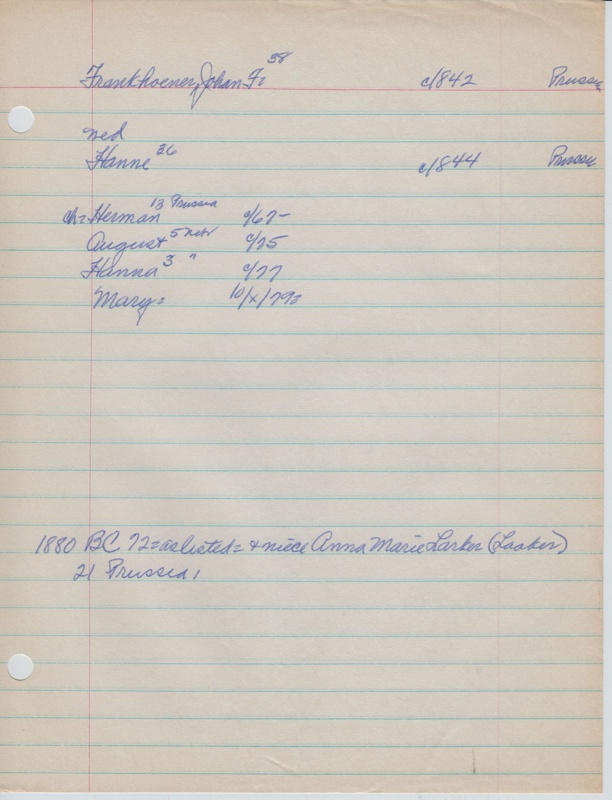 Frankhoener, Johan Fr 38 c/842 Prussia
ned
Hanne 36 c/844 Prussia
ch= Herman 13 Prussia c/67-
August 5 Nebr c/75
Hanna 3 " c/77
Mary= 10/x/79=
1880 BC 72=as listed= + niece Anna Marie Larker (Laaker)
21 Prussia,